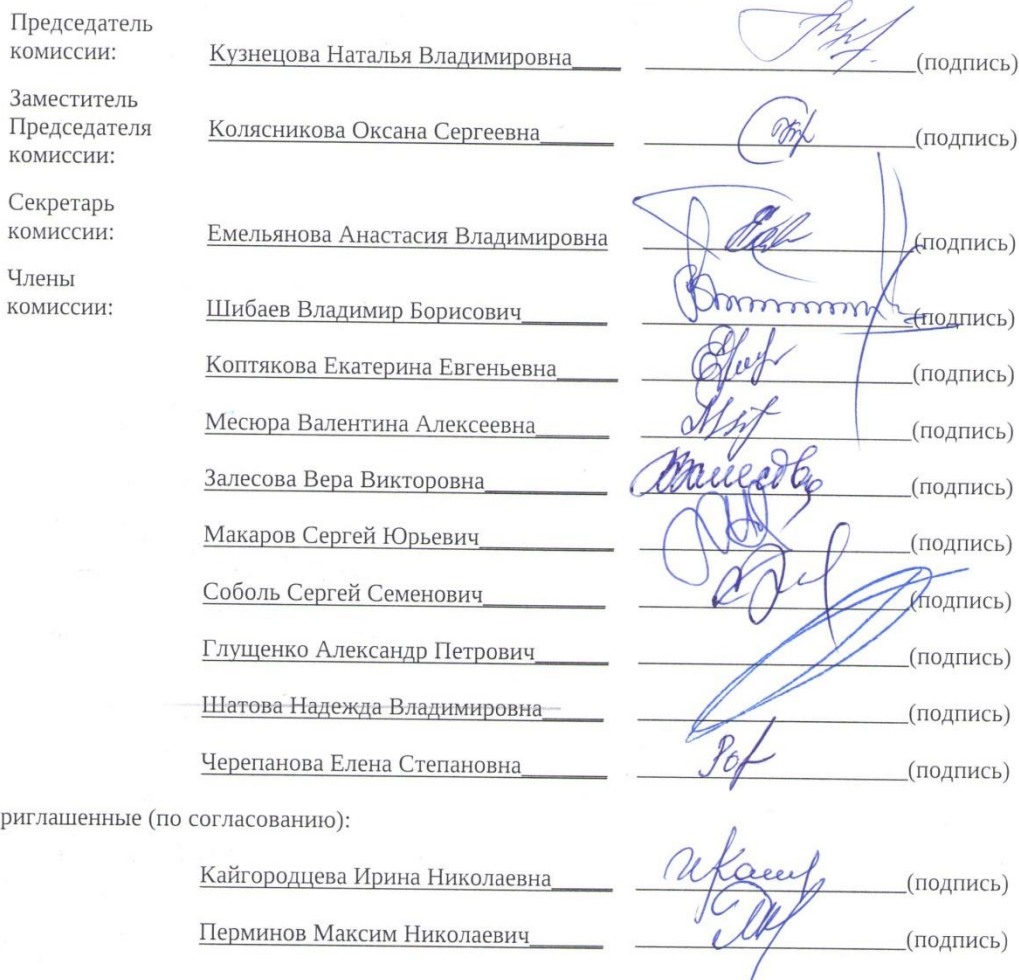 Председатель
комиссии: Кузнецова Наталья Владимировна (подпись)
Заместитель
Председателя Колясникова Оксана Сергеевна (подпись)
комиссии:
Секретарь
комиссии: Емельянова Анастасия Владимировна (подпись)
Члены
комиссии: Шибаев Владимир Борисович (подпись)
Коптякова Екатерина Евгеньевна (подпись)
Месюра Валентина Алексеевна (подпись)
Залесова Вера Викторовна (подпись)
Макаров Сергей Юрьевич (подпись)
Соболь Сергей Семенович (подпись)
Глущенко Александр Петрович (подпись)
Шатова Надежда Владимировна (подпись)
Черепанова Елена Степановна (подпись)
риглашенные (по согласованию):
Кайгородцева Ирина Николаевна (подпись)
Перминов Максим Николаевич (подпись)